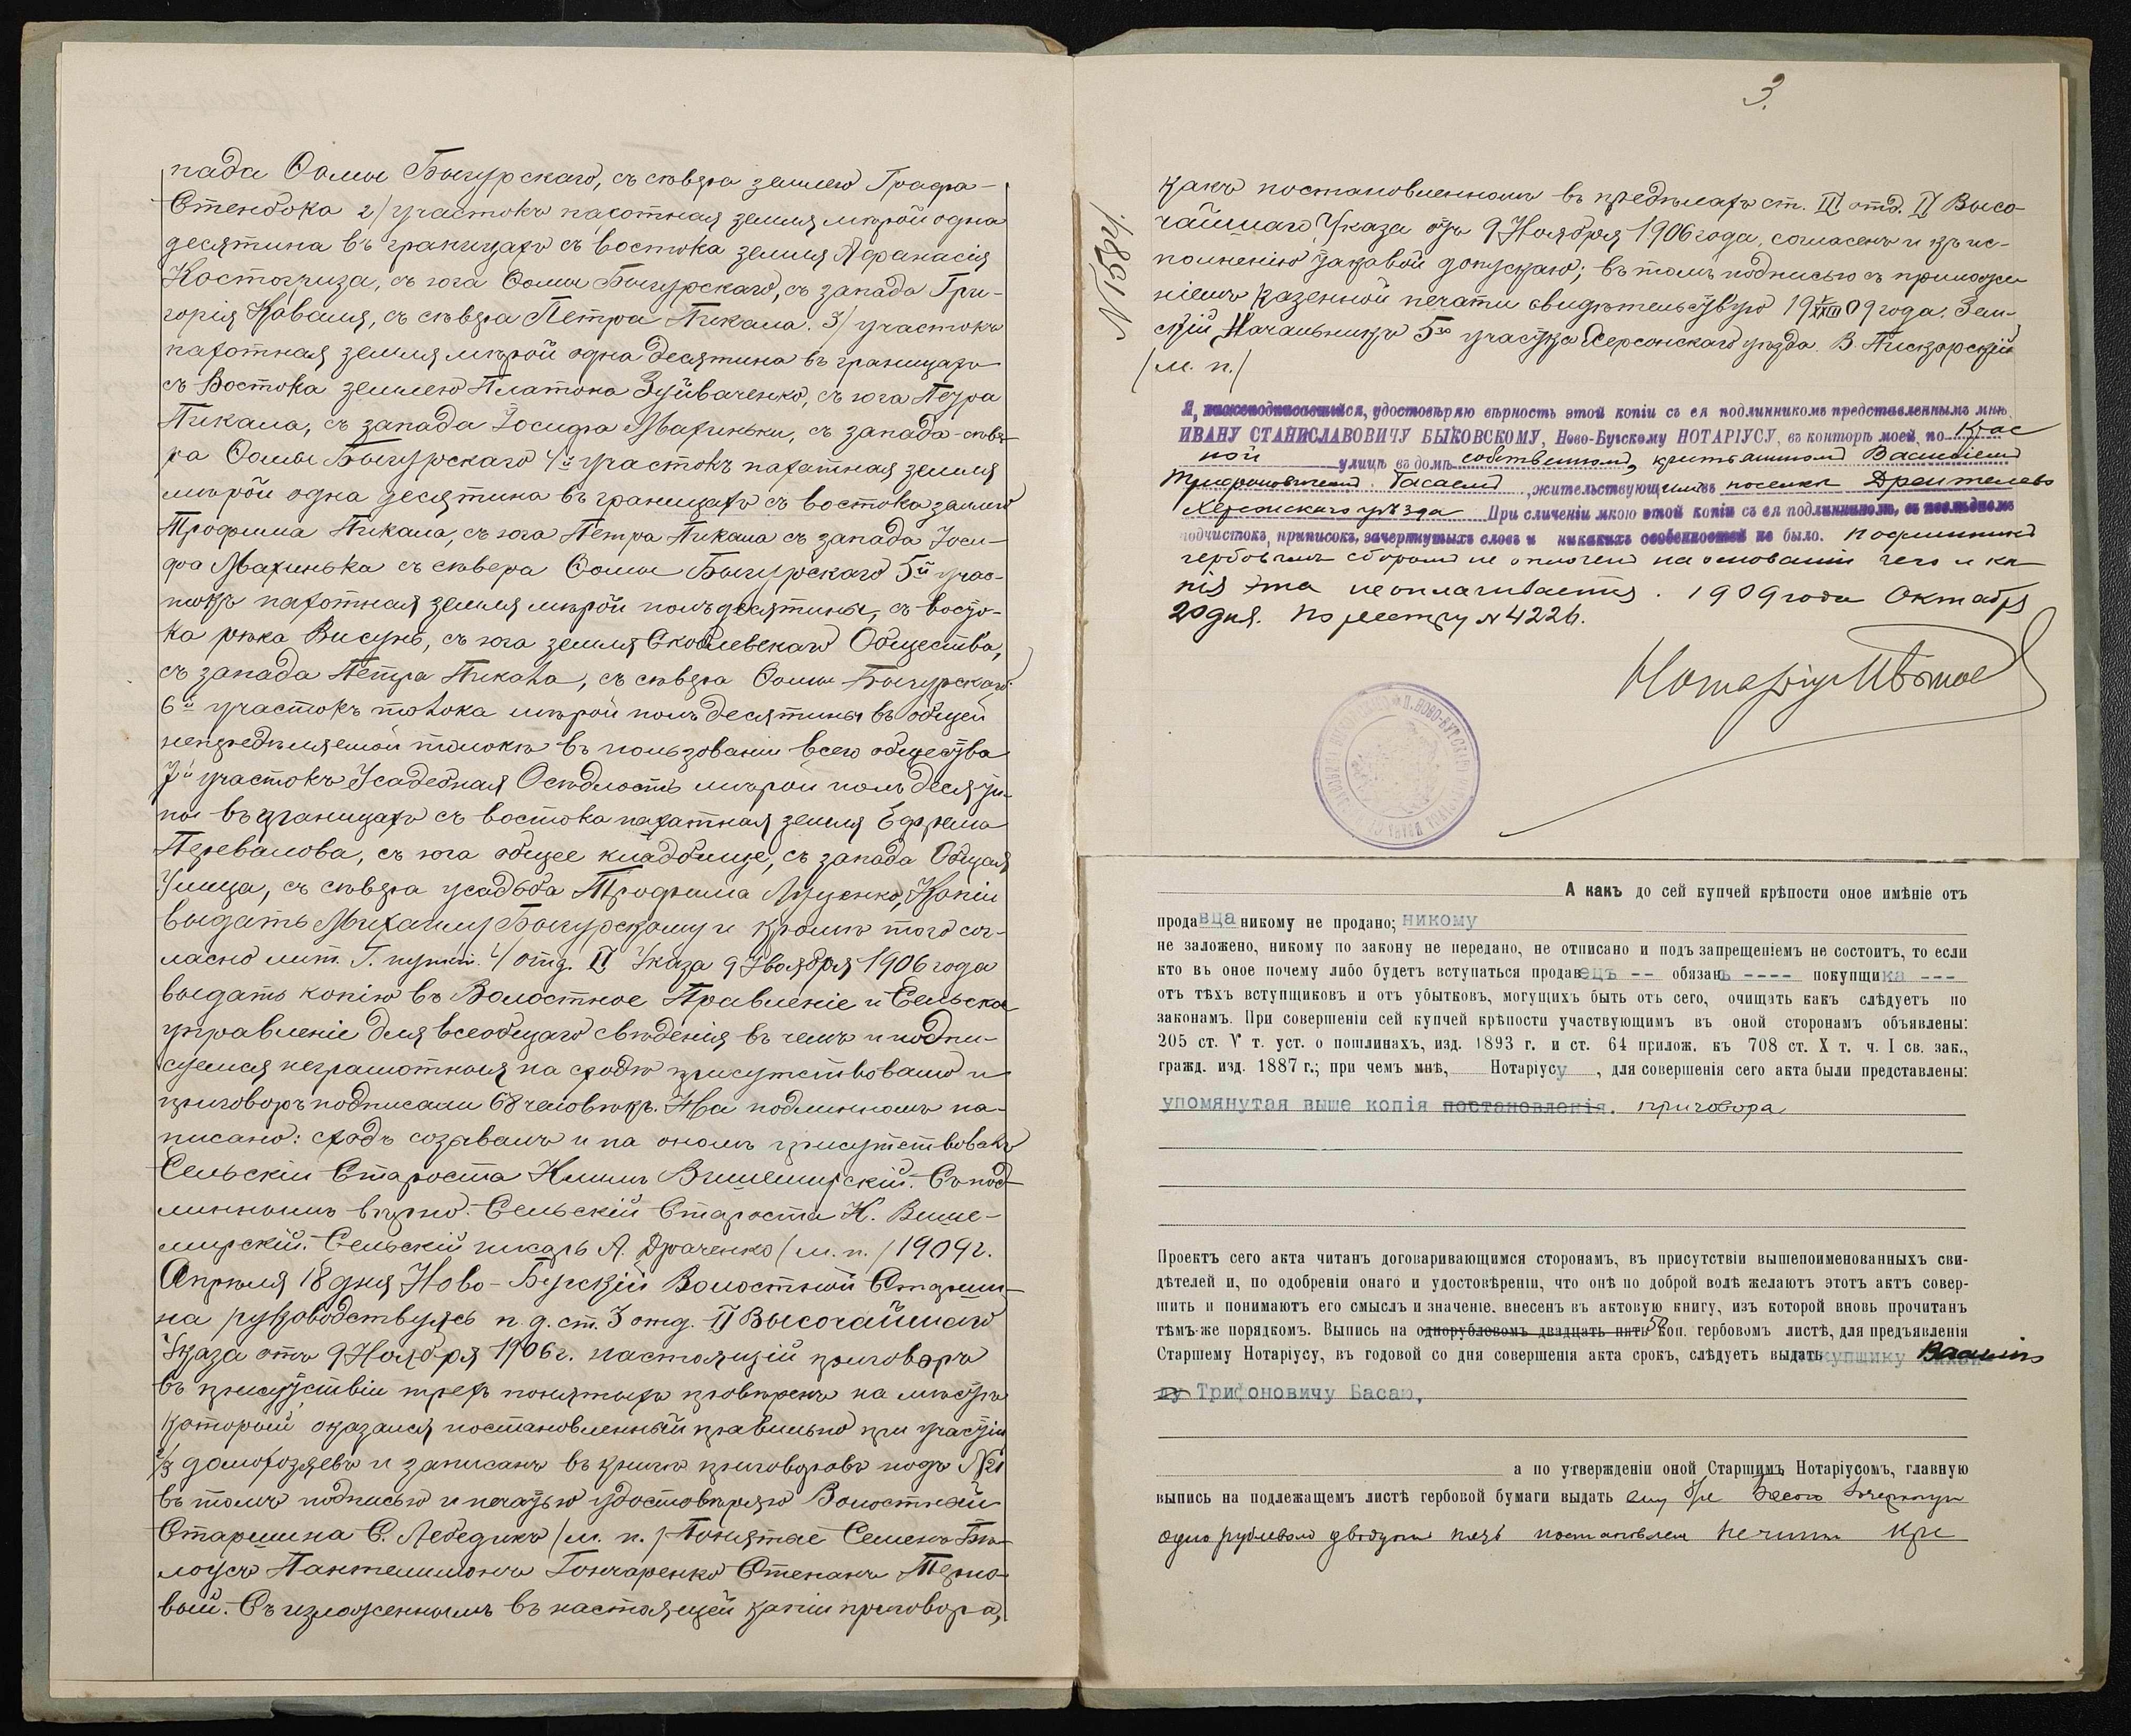 пада Ѳомы Быгурскаго, съ сѣвера землею Графа
Стенбока 2/ участокъ пахотная земля мѣрой одна
десятина въ границахъ съ востока земля Афанасія
Костогриза, съ юга Ѳомы Быгурскаго, съ запада Гри-
горія Коваля, съ сѣвера Петра Пикала. 3/ участокъ
пахотная земля мѣрой одна десятина въ границахъ
съ востока землею Платона Зуйваченко, съ юга Петра
Пикала, съ запада Іосифа Махиньки, съ запада-сѣве-
ра Ѳомы Быгурскаго 4й участокъ пахатная земля
мѣрой одна десятина въ границахъ съ востока землею
Трофима Пикала, съ юга Петра Пикала съ запада Іоси-
фа Махинька съ сѣвера Ѳомы Быгурскаго 5й учас-
токъ пахотная земля мѣрой полъ десятины, съ восто-
ка рѣка Висунь, съ юга земля Скобелевскаго Общества,
съ запада Петра Пикала, съ сѣвера Ѳомы Быгурскаго
6й участокъ толока мѣрой полъ десятины въ общей
нераздѣляемой толокѣ въ пользованіи всего общества
7й участокъ Усадебная Осѣдлость мѣрой полъ десяти-
ны въ границахъ съ востока пахатная земля Ефрема
Перевалова, съ юга общее кладбище, съ запада Общая
Улица, съ сѣвера усадьба Трофима Луценко, Копіи
выдать Михаилу Быгурскому и кромѣ того сог-
ласно лит. Г. пункт. 4/ отд. II Указа 9 Ноября 1906 года
выдать копію въ Волостное Правленіе и Сельское
управленіе для всеобщаго свѣденія въ чемъ и подпи-
суемся неграмотныя на сходѣ присутствовало и
приговоръ подписали 68 человѣкъ. На подлинномъ на-
писано: сходъ созывалъ и на ономъ присутствовалъ
Сельскій Староста Климъ Вишемирскій. Съ под-
линнымъ вѣрно. Сельскій Староста К. Више-
мирскій. Сельскій писарь А. Драченко /м. п./ 1909 г.
Апрѣля 18 дня Ново-Бугскій Волостной Старши-
на руководствуясь п. д. ст. 3 отд. II Высочайшаго
Указа отъ 9 Ноября 1906 г. настоящій приговоръ
въ присутствіи трехъ понятыхъ провѣренъ на мѣстѣ
который оказался постановленный правильно при участіи
2/3 домохозяевъ и записанъ въ книгѣ приговоровъ подъ №21
въ томъ подписью и печатью удостовѣряю Волостной
Старшина С. Лебедикъ /м. п./ Понятые Семенъ Бѣ-
лоусъ Пантелимонъ Гончаренко Степанъ Терно-
вый. Съ изложеннымъ въ настоящей копіи приговора,
3.
№1584
какъ постановленномъ въ предѣлахъ ст. III отд. II Высо-
чайшаго Указа отъ 9 Ноября 1906 года, согласенъ и къ ис-
полненію таковой допускаю; въ томъ подписью съ приложе
ніемъ казенной печати свидѣтельствую 19 09 года. Зем-
скій Начальникъ 5го участка Херсонскаго уѣзда В. Пискорскій
/м. п./
Я, нижеподписавшійся, удостовѣряю вѣрность этой копіи съ ея подлинникомъ представленнымъ мнѣ
ИВАНУ СТАНИСЛАВОВИЧУ БЫКОВСКОМУ, Ново-Бугскому НОТАРІУСУ, въ конторѣ моей, по Крас
ной улицѣ въ домѣ собственномъ, крестьяниномъ Василіемъ
Трифоновичемъ Басаемъ, жительствующимъ въ поселкѣ Дрентелево
Херсонскаго уѣзда При сличеніи мною этой копіи съ ея подлинникомъ, въ послѣднемъ
подчистокъ, приписокъ, зачеркнутыхъ словъ и никакихъ особенностей не было. Подлинникъ
гербовымъ сборомъ не оплоченъ на основаніи чего и ко-
пія эта неоплачивается. 1909 года Октября
20 дня. По реестру № 4226.
Нотаріусъ
А какъ до сей купчей крѣпости оное имѣніе отъ
продавца никому не продано; никому
не заложено, никому по закону не передано, не отписано и подъ запрещеніемъ не состоитъ, то если
кто въ оное почему либо будетъ вступаться продавецъ -- обязанъ ---- покупщика ---
отъ тѣхъ вступщиковъ и отъ убытковъ, могущихъ быть отъ сего, очищать какъ слѣдуетъ по
законамъ. При совершеніи сей купчей крѣпости участвующимъ въ оной сторонамъ объявлены:
205 ст. V т. уст. о пошлинахъ, изд. 1893 г. и ст. 64 прилож. къ 708 ст. X т. ч. I св. зак.,
гражд. изд. 1887 г.; при чемъ мнѣ, Нотаріусу, для совершенія сего акта были представлены:
упомянутая выше копія постановленія. приговора
Проектъ сего акта читанъ договаривающимся сторонамъ, въ присутствіи вышепоименованныхъ сви-
дѣтелей и, по одобреніи онаго и удостовѣреніи, что онѣ по доброй волѣ желаютъ этотъ актъ совер-
шить и понимаютъ его смыслъ и значеніе, внесенъ въ актовую книгу, изъ которой вновь прочитанъ
тѣмъ-же порядкомъ. Выпись на однорублевомъ двадцать пять 50 коп. гербовомъ листѣ, для предъявленія
Старшему Нотаріусу, въ годовой со дня совершенія акта срокъ, слѣдуетъ выдать покупщику Василію
Трифоновичу Басаю,
а по утвержденіи оной Старшимъ Нотаріусомъ, главную
выпись на подлежащемъ листѣ гербовой бумаги выдать ему же Басаю Зачеркнуто
одно рублевомъ двадцать пять постановлен не читать